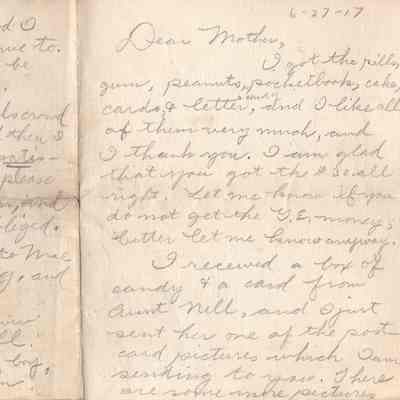 d I
ve to.
be
crowd
then I
please
and
liged.
to Mac
, and
ll.
boy,
6-27-17
Dear Mother,
I got the pills,
gum, peanuts, pocketbook, cake,
candy
cards, & letter, and I like all
of them very much, and
I thank you. I am glad
that you got the $ so all
right. Let me know if you
do not get the G.E. money;
better let me know anyway.
I received a box of
candy & a card from
Aunt Nell, and I just
sent her one of the post
card pictures which I am
sending to you. There
are some more pictures